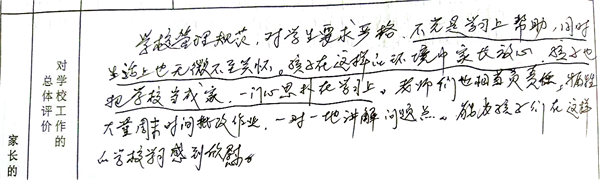 学校管理规范，对学生要求严格，不光是学习上帮助，同时
生活上也无微不至关怀。孩子在这样的环境中家长放心 孩子也
把学校当成家，一门心思扑在学习上。老师们也相当负责任，牺牲
大量周末时间批改作业，一对一地讲解问题点。能为孩子们在这样
的学校学习感到欣慰。
对学校工作的
总体评价
家长的